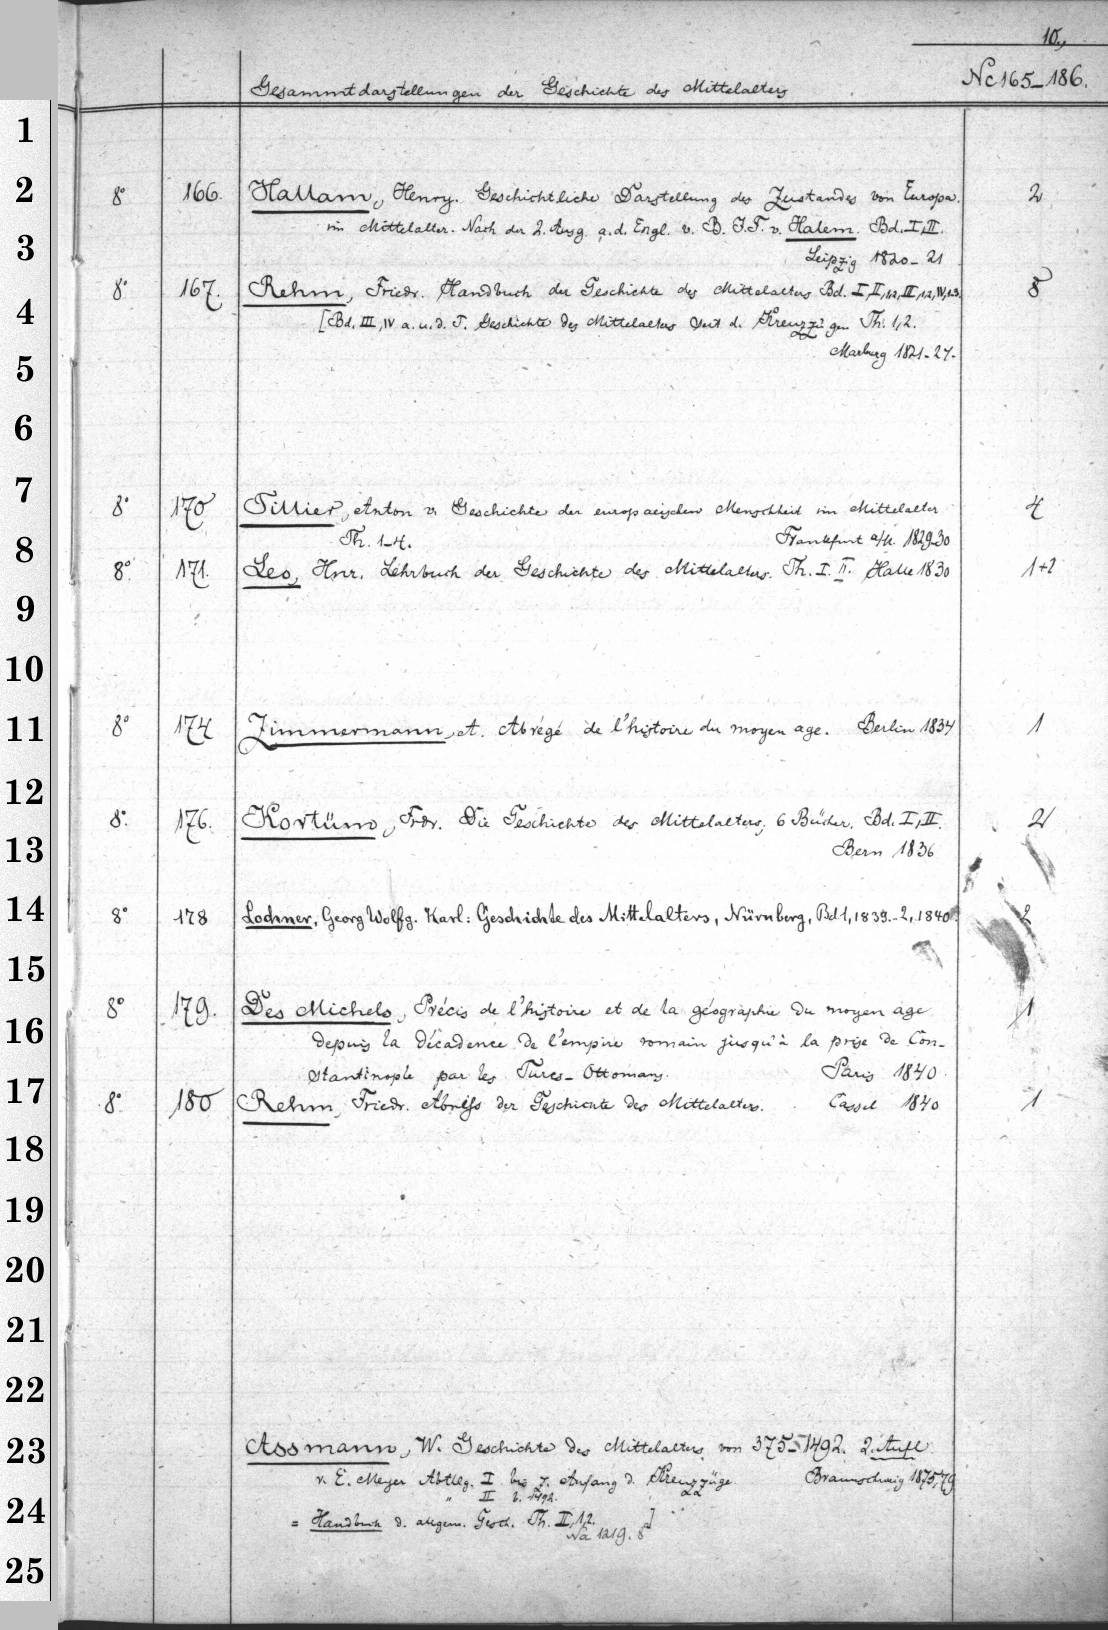 10.,
Gesammtdarstellungen der Geschichte des Mittelalters Nc 165-186.
1
2 8° 166. Hallam, Henry. Geschichtliche Darstellung des Zustandes von Europa. 2
im Mittelalter. Nach der 2. Ausg. a. d. Engl. v. B. J. F. v. Halem. Bd. I, II.
3 Leipzig 1820-21
8° 167. Rehm, Friedr. Handbuch der Geschichte des Mittelalters Bd. I, II,1,2, III,1,2, IV,1,2,3. 8
4 [Bd. III, IV a. u. d. T. Geschichte des Mittelalters seit d. Kreuzzügen Th. 1, 2.
5 Marburg 1821-27.
6
7 8° 170 Tillier, Anton v. Geschichte der europaeischen Menschheit im Mittelalter 4
8 Th. 1-4. Frankfurt a/M. 1829-30
8° 171. Leo, Hnr. Lehrbuch der Geschichte des Mittelalters. Th. I. II. Halle 1830 1+2
9
10
11 8° 174 Zimmermann, A. Abrégé de l'histoire du moyen age. Berlin 1834 1
12
8° 176. Kortüm, Frdr. Die Geschichte des Mittelalters, 6 Bücher. Bd. I, II. 2
13 Bern 1836
14 8° 178 Lochner, Georg Wolfg. Karl: Geschichte des Mittelalters, Nürnberg, Bd 1, 1839.-2, 1840. 2
15
8° 179. Des Michels, Précis de l'histoire et de la géographie du moyen age 1
16 depuis la décadence de l'empire romain jusqu'à la prise de Con-
stantinople par les Turcs-Ottomans. Paris 1840.
17 8° 180 Rehm, Friedr. Abriss der Geschichte des Mittelalters. Cassel 1840 1
18
19
20
21
22
23 Assmann, W. Geschichte des Mittelalters von 375-1492. 2. Aufl.
v. E. Meyer Abtlg. I bis z. Anfang d. Kreuzzüge Braunschweig 1875, 79
" II b. 1492.
24 = Handbuch d. allgem. Gesch. Th. II, 1.2. ]
Na 1219. 8°
25